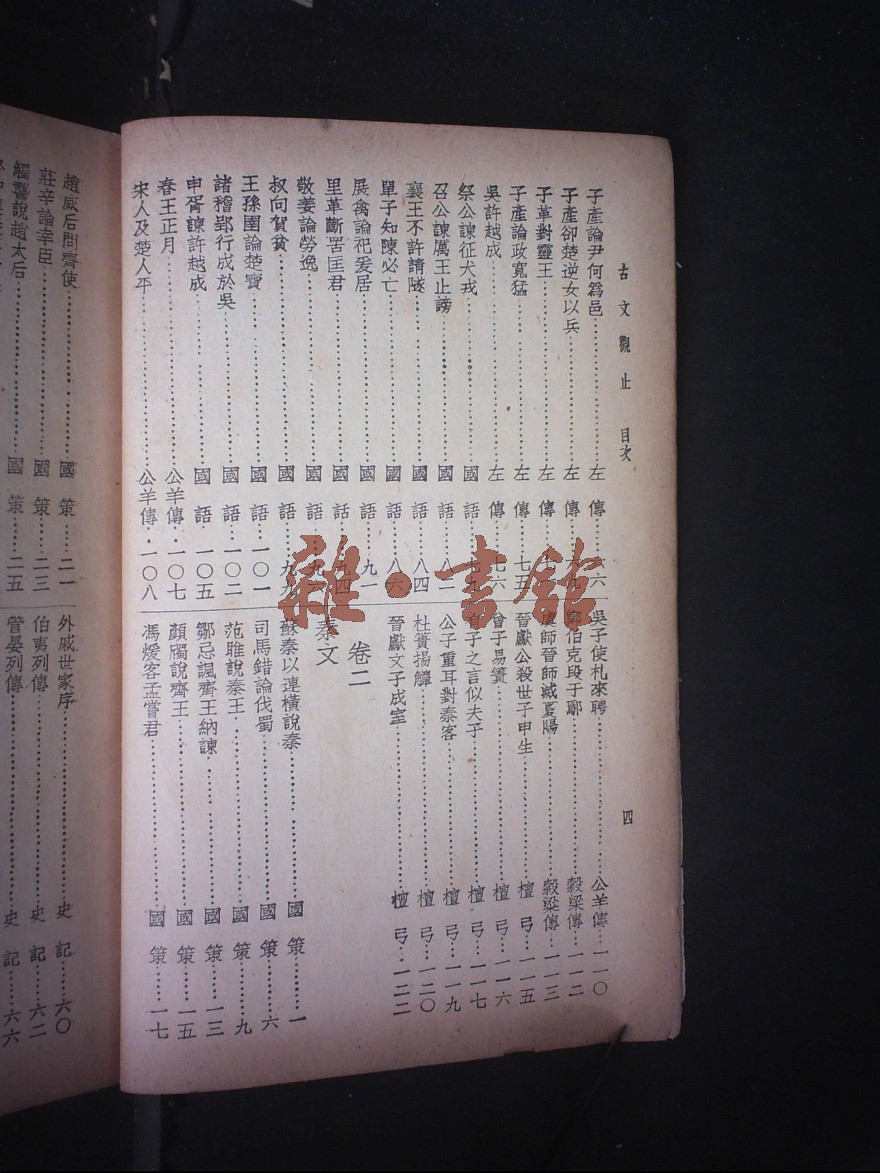 古文觀止 目次 四
子產論尹何爲邑 左傳 六六
子產卻楚逆女以兵 左傳 六九
子革對靈王 左傳
子產論政寬猛 左傳 七五
吳許越成 左傳 七六
祭公諫征犬戎 國語 七九
召公諫厲王止謗 國語 八二
襄王不許請隧 國語 八四
單子知陳必亡 國語 八六
展禽論祀爰居 國語 九一
里革斷罟匡君 國話 九四
敬姜論勞逸 國語
叔向賀貧 國語 九九
王孫圉論楚寶 國語 一〇一
諸稽郢行成於吳 國語 一〇二
申胥諫許越成 國語 一〇五
春王正月 公羊傳 一〇七
宋人及楚人平 公羊傳 一〇八
吳子使札來聘 公羊傳 一一〇
鄭伯克段于鄢 穀梁傳 一一二
虞師晉師滅夏陽 穀梁傳 一一三
晉獻公殺世子申生 檀弓 一一五
曾子易簀 檀弓 一一六
有子之言似夫子 檀弓 一一七
公子重耳對秦客 檀弓 一一九
杜蕢揚觶 檀弓 一二〇
晉獻文子成室 檀弓 一二二
卷二
秦文
蘇秦以連橫說秦 國策 一
司馬錯論伐蜀 國策 六
范雎說秦王 國策 九
鄒忌諷齊王納諫 國策 一三
顏斶說齊王 國策 一五
馮煖客孟嘗君 國策 一七
趙威后問齊使 國策 二一
莊辛論幸臣 國策 二三
觸讋說趙太后 國策 二五
外戚世家序 史記 六〇
伯夷列傳 史記 六二
管晏列傳 史記 六六
雜·書館